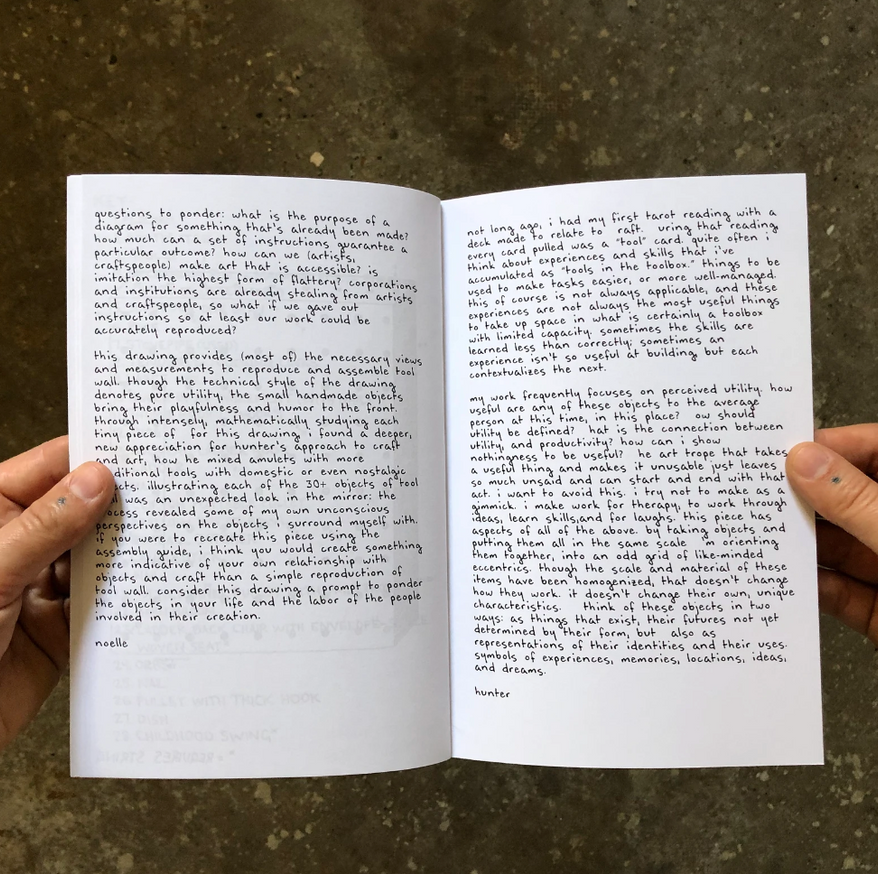 questions to ponder: what is the purpose of a
diagram for something that's already been made?
how much can a set of instructions guarantee a
particular outcome? how can we (artists,
craftspeople) make art that is accessible? is
imitation the highest form of flattery? corporations
and institutions are already stealing from artists
and craftspeople, so what if we gave out
instructions so at least our work could be
accurately reproduced?
this drawing provides (most of) the necessary views
and measurements to reproduce and assemble tool
wall. though the technical style of the drawing
denotes pure utility, the small handmade objects
bring their playfulness and humor to the front.
through intensely, mathematically studying each
tiny piece of for this drawing i found a deeper,
new appreciation for hunter's approach to craft
and art, how he mixed amulets with more
ditional tools with domestic or even nostalgic
cts. illustrating each of the 30+ objects of tool
was an unexpected look in the mirror: the
ocess revealed some of my own unconscious
perspectives on the objects i surround myself with.
if you were to recreate this piece using the
assembly guide, i think you would create something
more indicative of your own relationship with
objects and craft than a simple reproduction of
tool wall. consider this drawing a prompt to ponder
the objects in your life and the labor of the people
involved in their creation.
noelle
not long ago, i had my first tarot reading with a
deck made to relate to raft. uring that reading
every card pulled was a "tool" card. quite often i
think about experiences and skills that i've
accumulated as "tools in the toolbox." things to be
used to make tasks easier, or more well-managed.
this of course is not always applicable, and these
experiences are not always the most useful things
to take up space in what is certainly a toolbox
with limited capacity. sometimes the skills are
learned less than correctly; sometimes an
experience isn't so useful at building, but each
contextualizes the next.
my work frequently focuses on perceived utility. how
useful are any of these objects to the average
person at this time, in this place? ow should
utility be defined? hat is the connection between
utility, and productivity? how can i show
nothingness to be useful? he art trope that takes
a useful thing and makes it unusable just leaves
so much unsaid and can start and end with that
act. i want to avoid this. i try not to make as a
gimmick. i make work for therapy, to work through
ideas, learn skills,and for laughs. this piece has
aspects of all of the above. by taking objects and
putting them all in the same scale 'm orienting
them together, into an odd grid of like-minded
eccentrics. though the scale and material of these
items have been homogenized, that doesn't change
how they work. it doesn't change their own, unique
characteristics. Think of these objects in two
ways: as things that exist, their futures not yet
determined by their form, but also as
representations of their identities and their uses.
symbols of experiences, memories, locations, ideas,
and dreams.
hunter